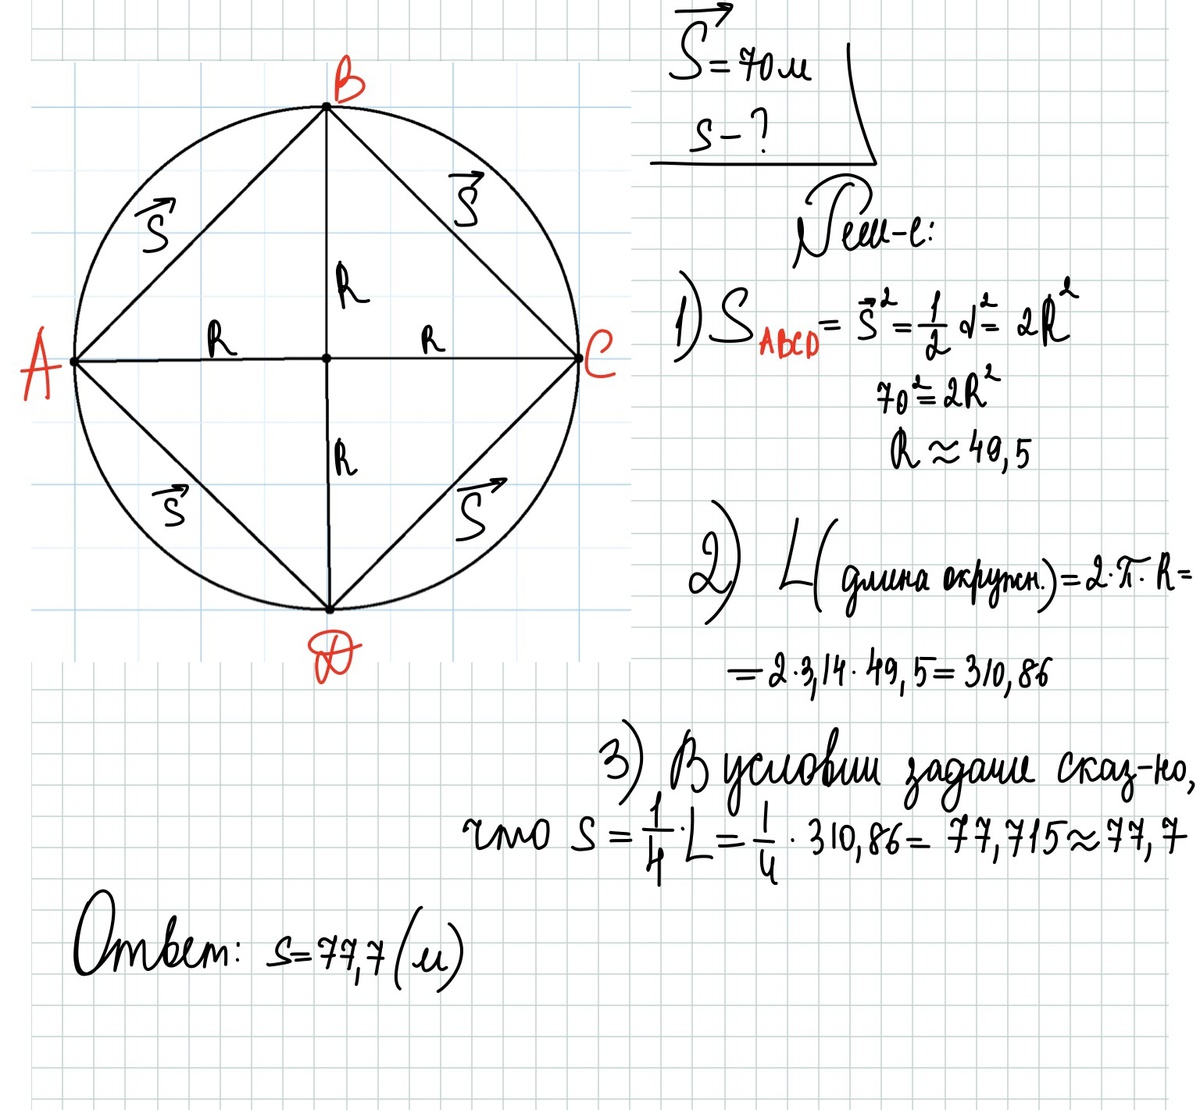 B
S⃗
S⃗
R
A
R
R
C
R
S⃗
S⃗
D
S⃗ = 70 м
s - ?
Реш-е:
1) S ABCD = S⃗² = 1/2 d² = 2R²
70² = 2R²
R ≈ 49,5
2) L (длина окружн.) = 2·π·R =
= 2·3,14·49,5 = 310,86
3) В условии задачи сказ-но,
что S = 1/4·L = 1/4 · 310,86 = 77,715 ≈ 77,7
Ответ: S = 77,7 (м)